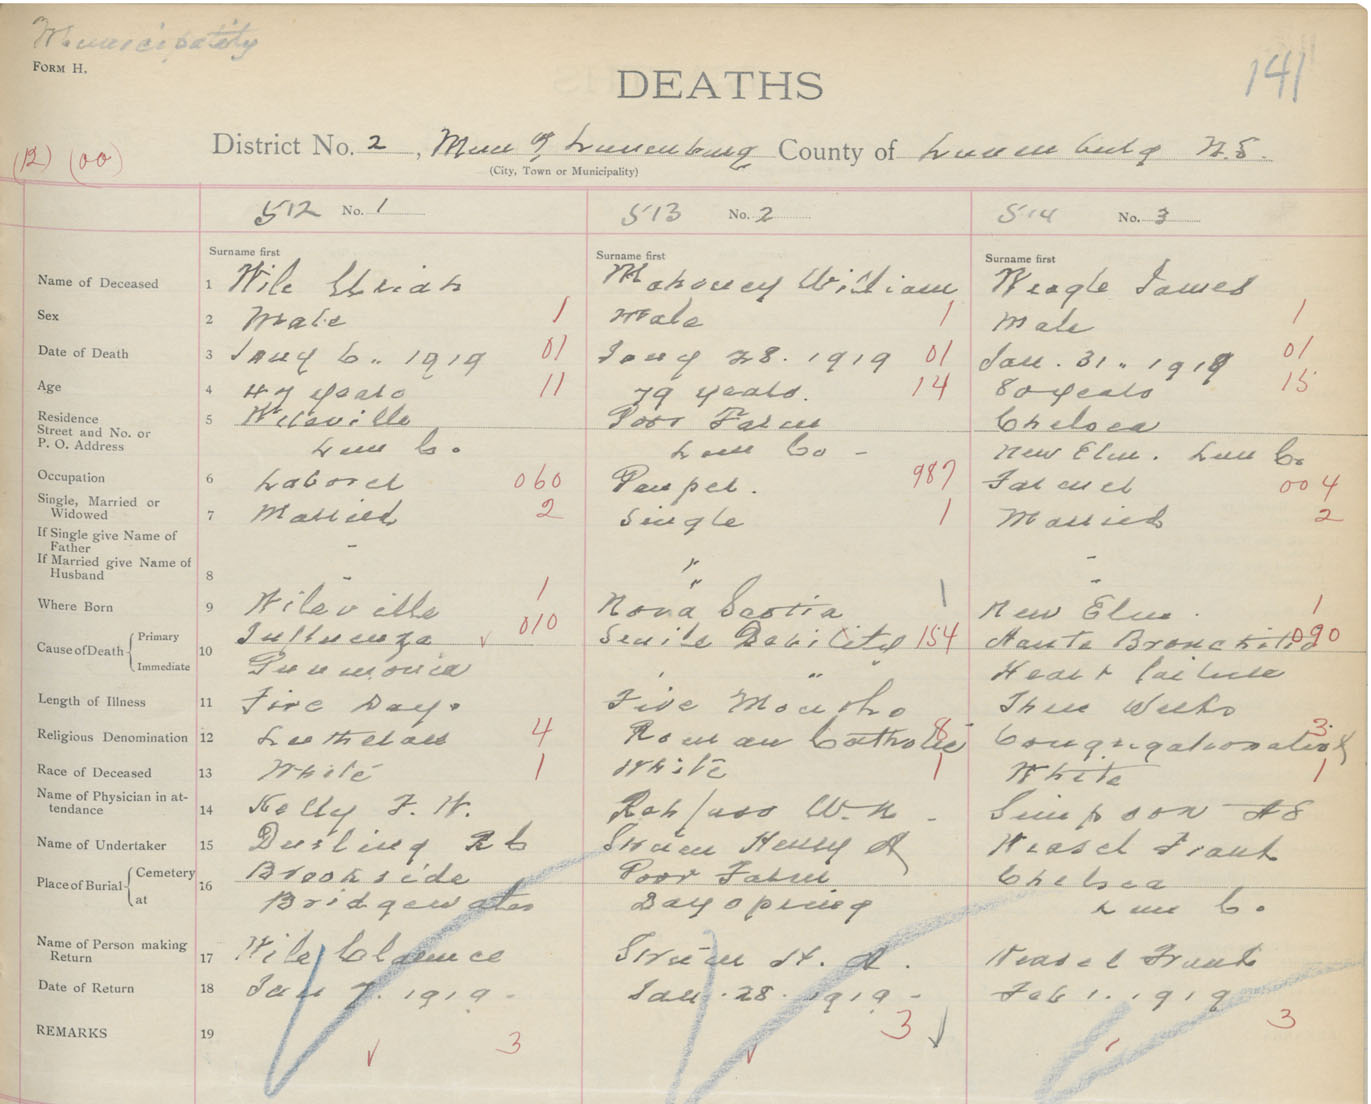 Municipality
FORM H.
141
DEATHS
(12) (00)
District No. 2, Mun of Lunenburg County of Lunenburg N.S.
(City, Town or Municipality)
512 No. 1 513 No. 2 514 No. 3
Surname first Surname first Surname first
Name of Deceased 1 Wile Mahoney William Weagle James
Sex 2 Male 1 Male 1 Male 1
Date of Death 3 Jany 6" 1919 01 Jany 28. 1919 01 Jan. 31" 1919 01
Age 4 47 years 11 79 years. 14 80 years 15
Residence
Street and No. or 5 Wileville Poor Farm Chelsea
P. O. Address Lun Co. Lun Co - New Elm. Lun Co
Occupation 6 Laborer 060 Pauper. 987 Farmer 004
Single, Married or
Widowed 7 Married 2 Single 1 Married 2
If Single give Name of
Father - " -
If Married give Name of
Husband 8 - " -
Where Born 9 Wileville 1 Nova Scotia 1 New Elm. 1
Cause of Death { Primary 10 Influenza 010 Senile Debility 154 Acute Bronchitis 090
Immediate Pneumonia " " Heart failure
Length of Illness 11 Five Days Five Months Three Weeks
Religious Denomination 12 Lutheran 4 Roman Catholic 8 Congregationalist 3
Race of Deceased 13 White 1 White 1 White 1
Name of Physician in at-
tendance 14 Kelly F. W. Rehfuss W. N. Simpson
Name of Undertaker 15 Henry A Frank
Place of Burial { Cemetery 16 Brookside Poor Farm Chelsea
at Bridgewater Dayspring Lun Co.
Name of Person making
Return 17 Wile Clarence H. A. Frank
Date of Return 18 Jan 7. 1919 - Jan. 28. 1919 - Feb 1. 1919
REMARKS 19 3 3 3